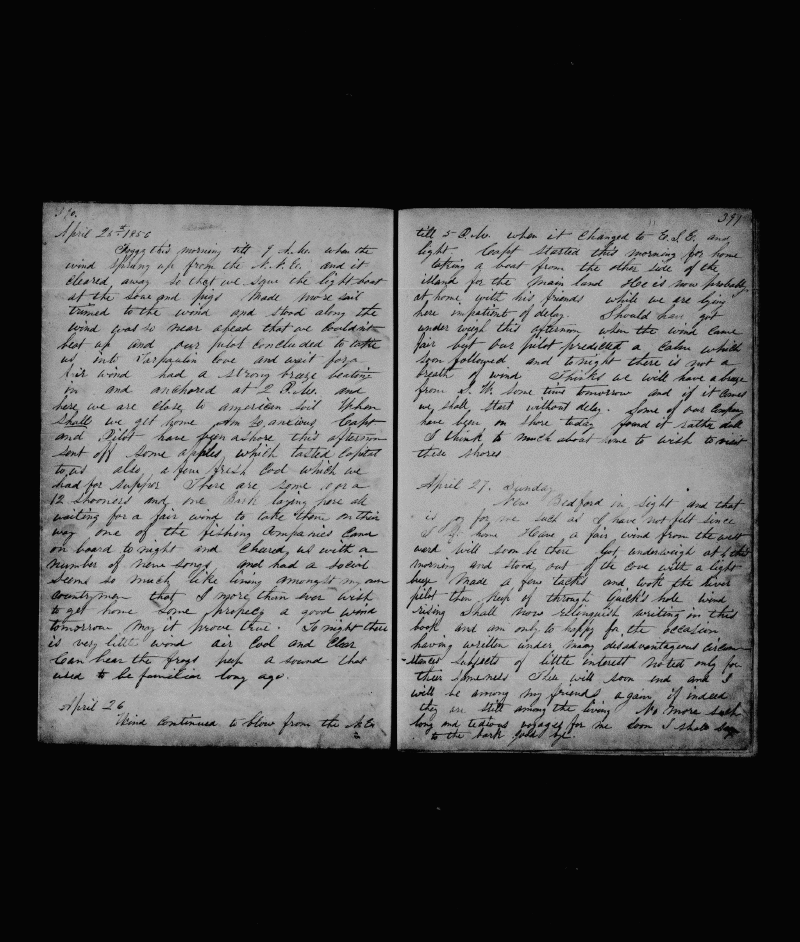 390.
April 25th 1856
Foggy this morning till 9 A.M. when the
wind sprung up from the N.N.E. and it
cleared away so that we saw the light boat
at the sow and pigs made more sail
trimed to the wind and stood along the
wind was so near ahead that we couldnt
beat up and our pilot concluded to take
us into Tarpaulin cove and wait for a
fair wind had a strong breeze beating
in and anchored at 2 P.M. and
here we are close to american soil When
shall we get home am so anxious Capt
and Pilot have been ashore this afternoon
sent off some apples which tasted capital
to us also a few fresh Cod which we
had for supper There are some or a
12 shooners and one Bark laying here all
waiting for a fair wind to take them on their
way one of the fishing Companies came
on board to night and Cheered us with a
number of new songs and had a social
seems so much like living amongst my own
countrymen that I more than ever wish
to get home some prophecy a good wind
tomorrow may it prove true. To night there
is very little wind air Cool and Clear
Can hear the frogs peep a sound that
used to be familiar long ago.
April 26
Wind continued to blow from the N.E.
391
till 5 P.M. when it changed to E.S.E. and
light Capt started this morning for home
taking a boat from the other side of the
island for the main land He is now probably
at home with his friends while we are lying
here impatient of delay. Should have got
under weigh this afternoon when the wind came
fair but our pilot predicted a calm which
soon followed and to night there is not a
breath of wind Thinks we will have a breeze
from S.W. some time tomorrow and if it comes
we shall start without delay. Some of our company
have been on shore today found it rather dull
I think to much about home to wish to visit
these shores
April 27. Sunday
New Bedford in sight and that
is joy for me such as I have not felt since
I left home Have a fair wind from the west
ward will soon be there Got underweigh at 6 this
morning and stood out of the cove with a light
breeze made a few tacks and took the river
pilot then kept of through Quick's hole wind
rising Shall now relinquish writing in this
book and am only to happy for the occasion
having written under many disadvantageous circum
stances subjects of little interest noted only for
their sameness This will soon end and I
will be among my friends again if indeed
they are still among the living No more such
long and tedious voyages for me soon I shall say
to the bark good bye.